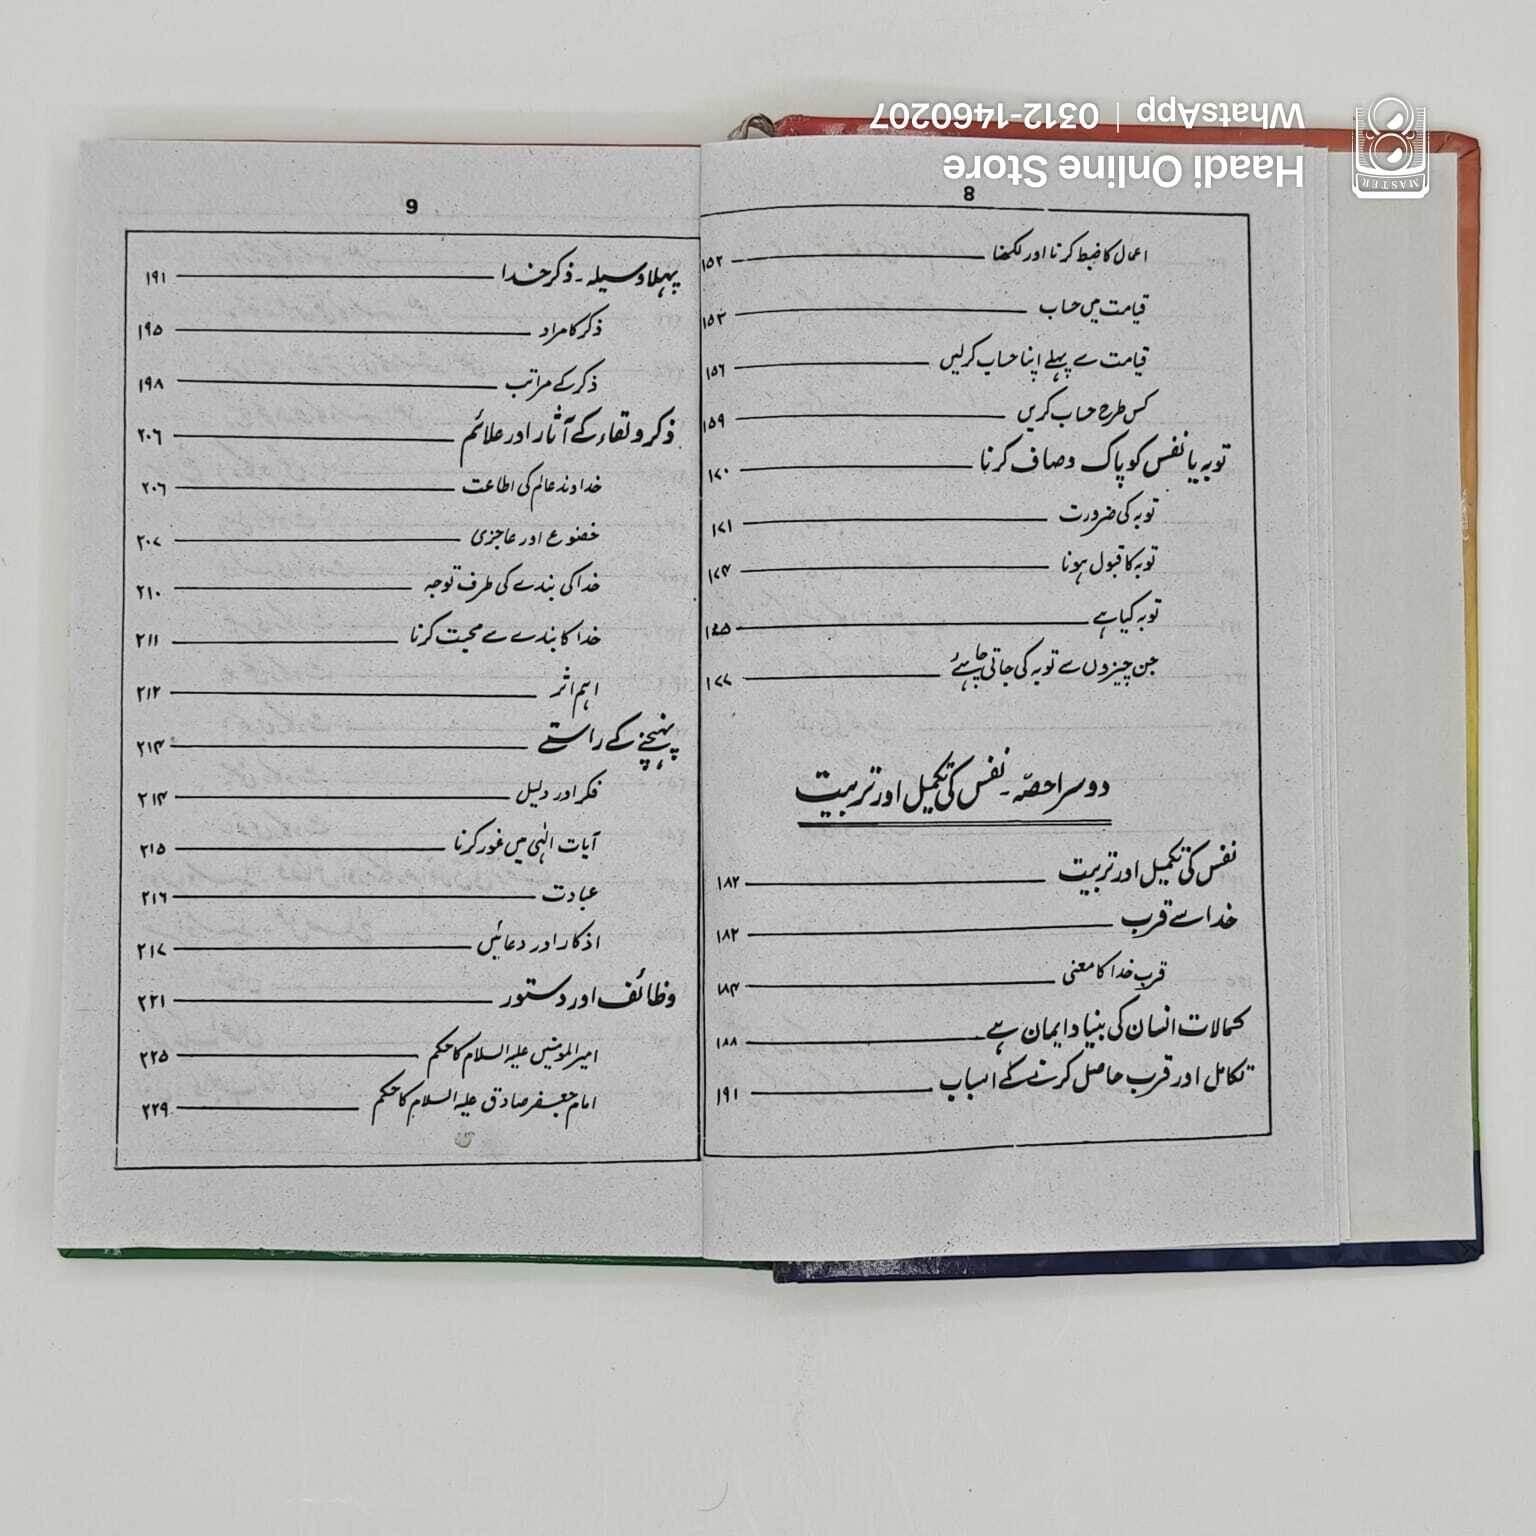 WhatsApp | 0312-1460207
Haadi Online Store
MASTER
8
اعمال کا ضبط کرنا اور لکھنا ۱۵۲
قیامت میں حساب ۱۵۳
قیامت سے پہلے اپنا حساب کرلیں ۱۵۶
کس طرح حساب کریں ۱۵۹
توبہ یا نفس کو پاک وصاف کرنا ۱۷۰
توبہ کی ضرورت ۱۷۱
توبہ کا قبول ہونا ۱۷۴
توبہ کیا ہے
جن چیزوں سے توبہ کی جاتی چاہئے ۱۷۷
دوسرا حصّہ ۔ نفس کی تکمیل اور تربیت
نفس کی تکمیل اور تربیت ۱۸۲
خدا سے قرب ۱۸۲
قرب خدا کا معنی ۱۸۴
کمالات انسان کی بنیاد ایمان ہے ۱۸۸
تکامل اور قرب حاصل کرنے کے اسباب ۱۹۱
9
پہلا وسیلہ ۔ ذکر خدا ۱۹۱
ذکر کا مراد ۱۹۵
ذکر کے مراتب ۱۹۸
ذکر و لقاء کے آثار اور علائم ۲۰۶
خداوند عالم کی اطاعت ۲۰۶
خضوع اور عاجزی ۲۰۷
خدا کی بندے کی طرف توجہ ۲۱۰
خدا کا بندے سے محبت کرنا ۲۱۱
اہم اثر ۲۱۲
پہنچنے کے راستے ۲۱۴
فکر اور دلیل ۲۱۴
آیات الٰہی میں غور کرنا ۲۱۵
عبادت ۲۱۶
اذکار اور دعائیں ۲۱۷
وظائف اور دستور ۲۲۱
امیرالمومنین علیہ السلام کا حکم ۲۲۵
امام جعفر صادق علیہ السلام کا حکم ۲۲۹